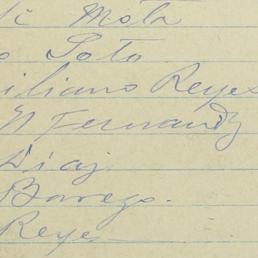 Mota
o Soto
iliano Reyes
Fernandz
Diaz
Borrego.
Reyes